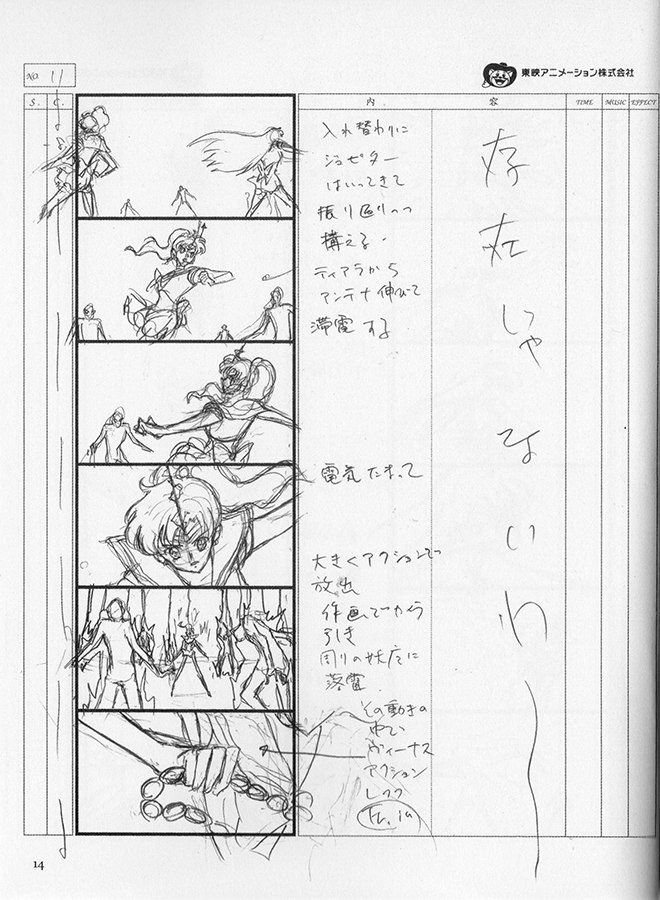 NO. 11
東映アニメーション株式会社
S. C. 内 容 TIME MUSIC EFFECT
入れ替わりに
ジュピター
はいってきて
振り返りつつ
構える.
ティアラから
アンテナ伸びて
滞電する
電気たまって
大きくアクションして
放出
作画でカイラ
引き
周りの妖魔に
落雷.
その動きの
中で
ヴィーナス
アクション
存在じゃないわ
14